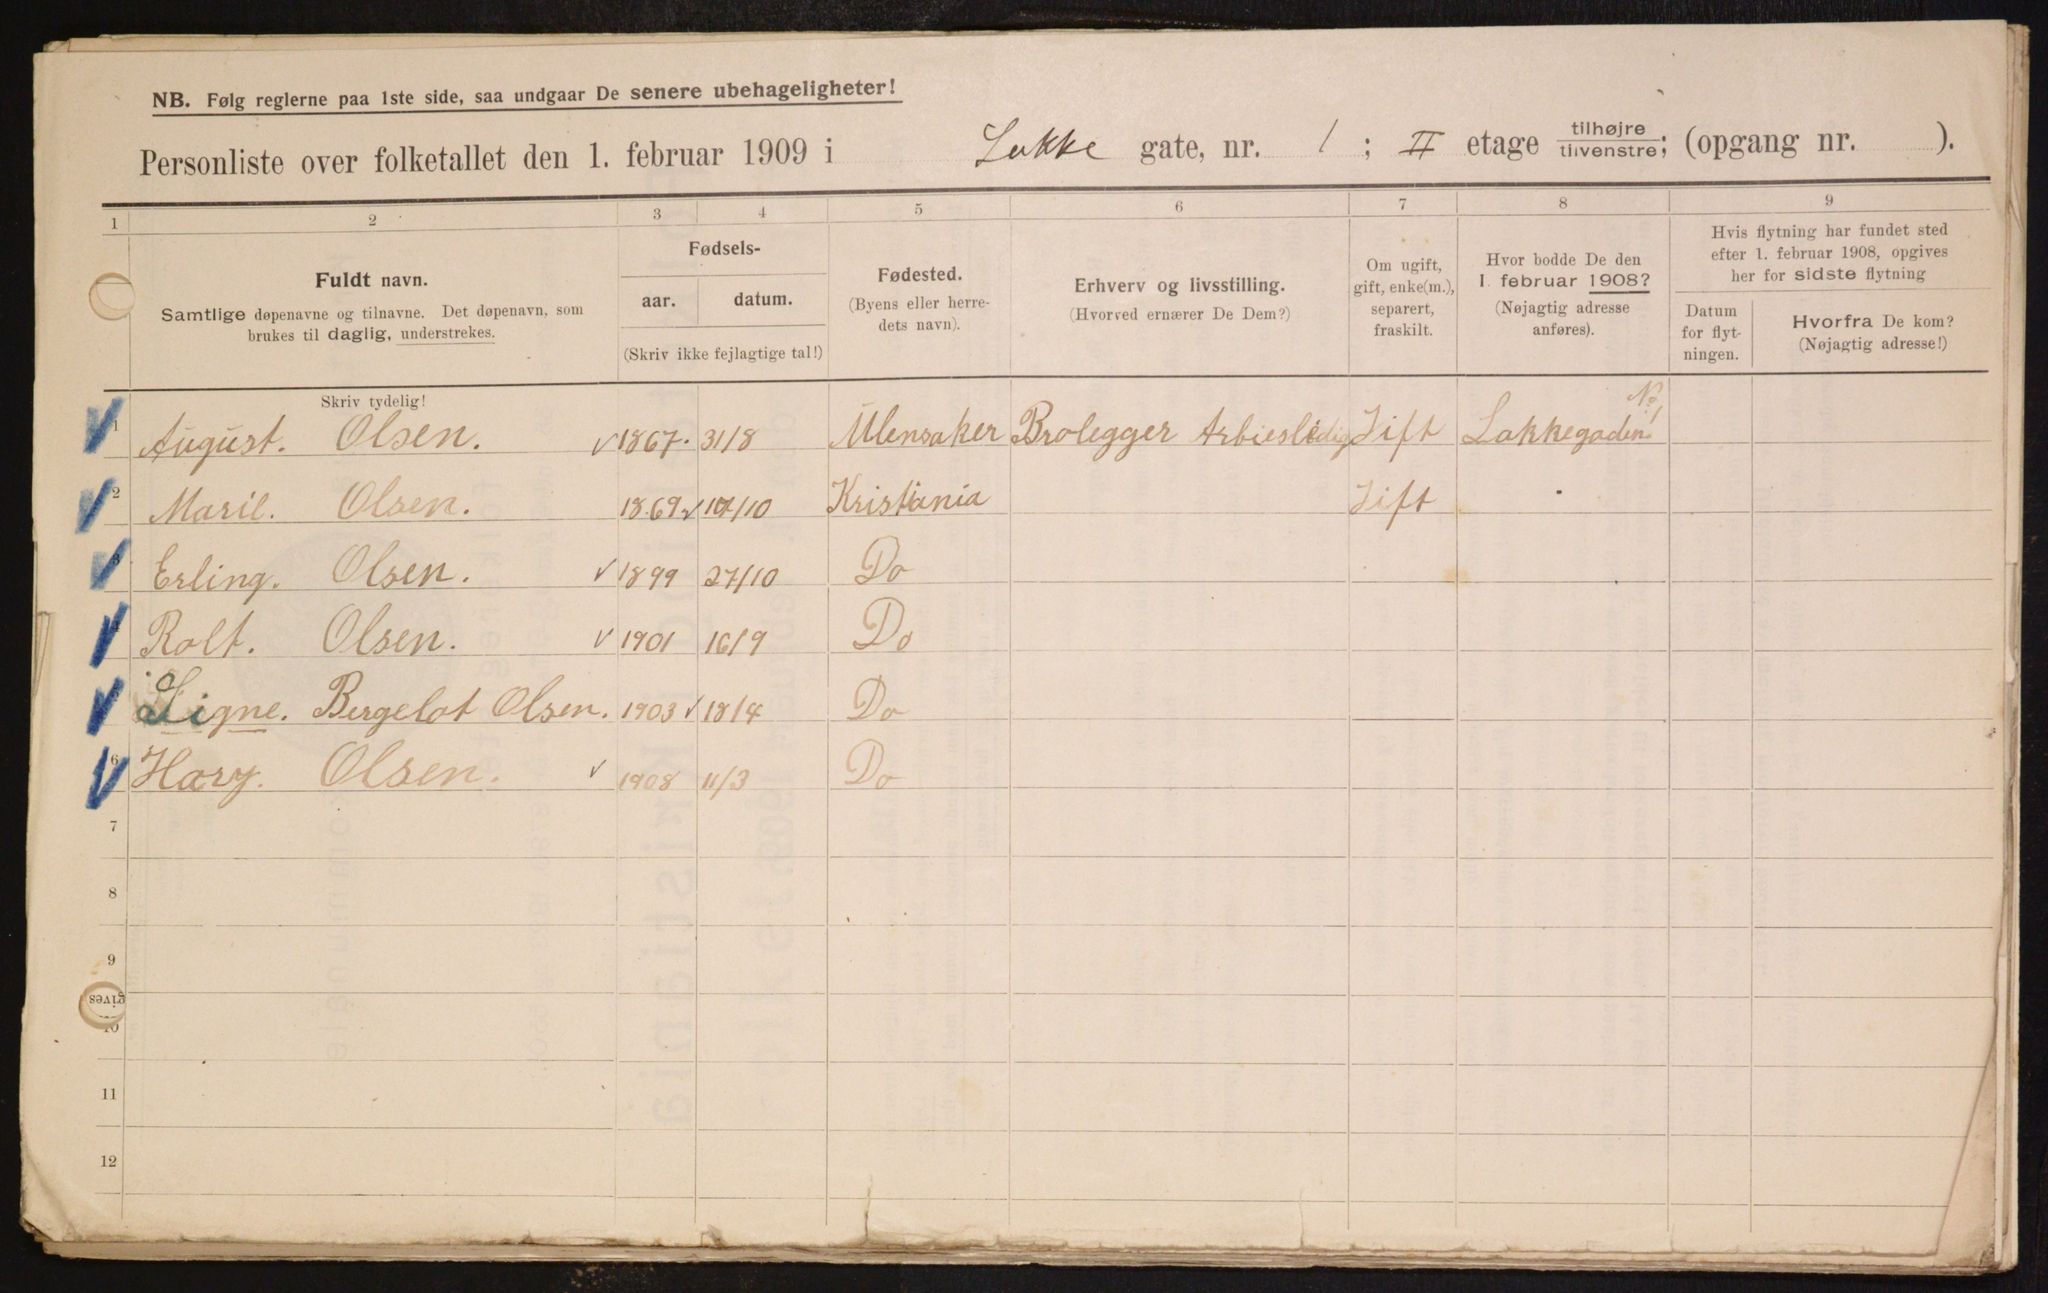 NB. Følg reglerne paa 1ste side, saa undgaar De senere ubehageligheter!
Personliste over folketallet den 1. februar 1909 i Lakke gate, nr. 1 ; II etage tilhøjre tilvenstre; (opgang nr. ).
1 2 3 4 5 6 7 8 9
Fuldt navn.
Samtlige døpenavne og tilnavne. Det døpenavn, som
brukes til daglig, understrekes.
Fødsels-
aar. datum.
(Skriv ikke fejlagtige tal!)
Fødested.
(Byens eller herre-
dets navn).
Erhverv og livsstilling.
(Hvorved ernærer De Dem?)
Om ugift,
gift, enke(m.),
separert,
fraskilt.
Hvor bodde De den
1. februar 1908?
(Nøjagtig adresse
anføres).
Hvis flytning har fundet sted
efter 1. februar 1908, opgives
her for sidste flytning
Datum
for flyt-
ningen.
Hvorfra De kom?
(Nøjagtig adresse!)
Skriv tydelig!
1 August. Olsen. 1867. 31/8 Ulensaker Brolegger Arbiesledig Gift Lakkegaden No 1
2 Marie. Olsen. 1869 17/10 Kristiania Gift
3 Erling. Olsen. 1899 27/10 Do
4 Rolf. Olsen. 1901 16/9 Do
5 Signe. Bergelot Olsen. 1903 18/4 Do
6 Hary. Olsen. 1908 11/3 Do
7
8
9
gives
10
11
12